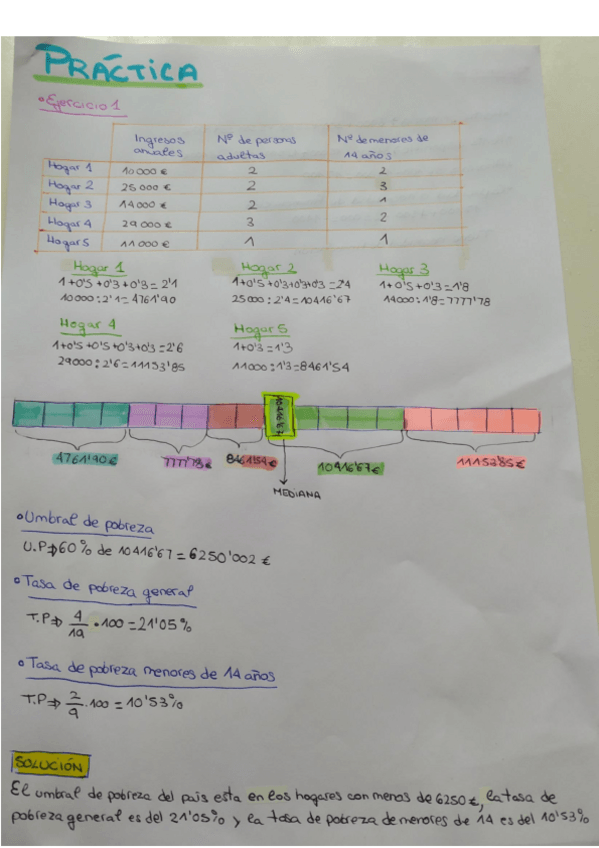 PRÁCTICA
• Ejercicio 1
Ingresos anuales Nº de personas adultas Nº de menores de 14 años
Hogar 1 10000 € 2 2
Hogar 2 25000 € 2 3
Hogar 3 14000 € 2 1
Hogar 4 29000 € 3 2
Hogar 5 11000 € 1 1
Hogar 1 Hogar 2 Hogar 3
1+0'5+0'3+0'3=2'1 1+0'5+0'3+0'3+0'3=2'4 1+0'5+0'3=1'8
10000:2'1=4761'90 25000:2'4=10416'67 14000:1'8=7777'78
Hogar 4 Hogar 5
1+0'5+0'5+0'3+0'3=2'6 1+0'3=1'3
29000:2'6=11153'85 11000:1'3=8461'54
10416'67
4761'90€ 7777'78€ 8461'54€ 10416'67€ 11153'85€
MEDIANA
• Umbral de pobreza
U.P⇒60% de 10416'67=6250'002 €
• Tasa de pobreza general
T.P⇒ 4/19 • 100 = 21'05%
• Tasa de pobreza menores de 14 años
T.P⇒ 2/9 . 100 = 10'53%
SOLUCIÓN
El umbral de pobreza del país esta en los hogares con menos de 6250€, la tasa de
pobreza general es del 21'05% y la tasa de pobreza de menores de 14 es del 10'53%